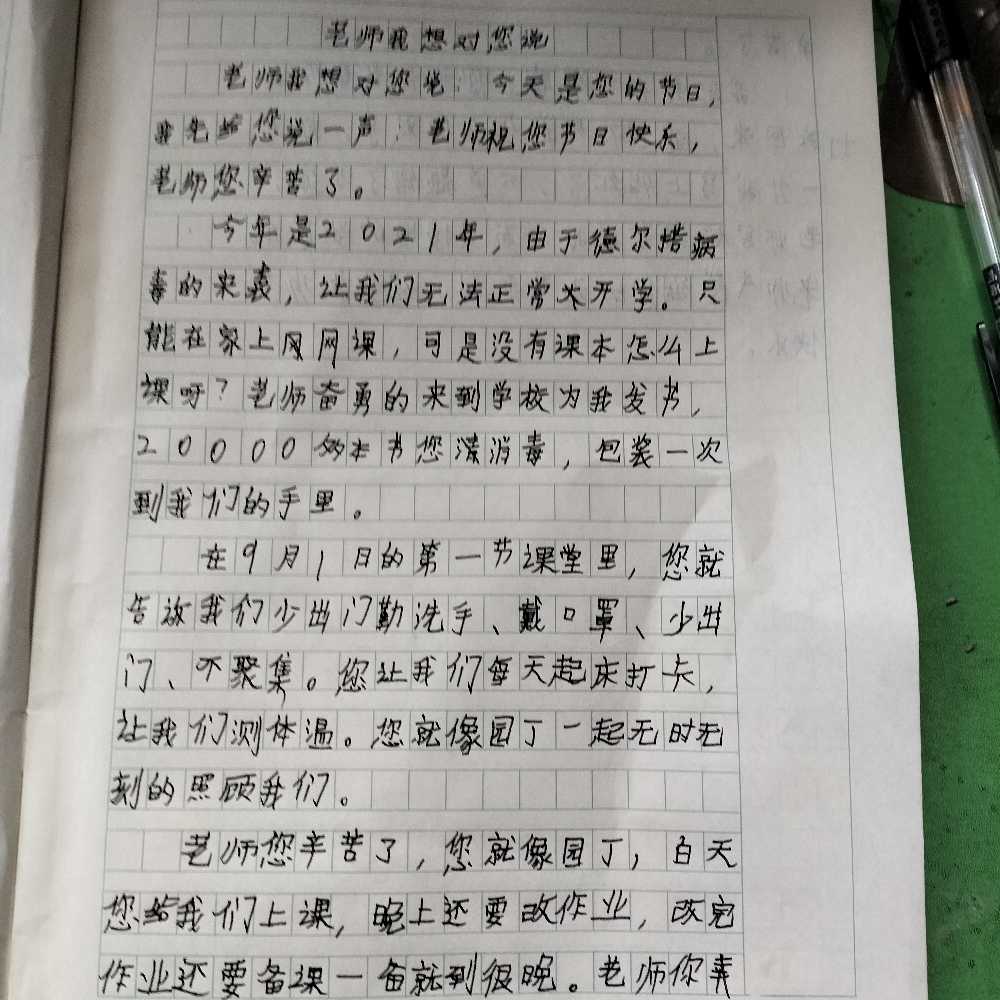 老师我想对您说
老师我想对您说：今天是您的节日，
我先给您说一声：老师祝您节日快乐，
老师您辛苦了。
今年是2021年，由于德尔塔病
毒的来袭，让我们无法正常大开学。只
能在家上网网课，可是没有课本怎么上
课呀？老师奋勇的来到学校为我发书，
20000多本书您清消毒，包装一次
到我们的手里。
在9月1日的第一节课堂里，您就
告诉我们少出门勤洗手、戴口罩、少出
门、不聚集。您让我们每天起床打卡，
让我们测体温。您就像园丁一起无时无
刻的照顾我们。
老师您辛苦了，您就像园丁，白天
您给我们上课，晚上还要改作业，改完
作业还要备课一备就到很晚。老师你